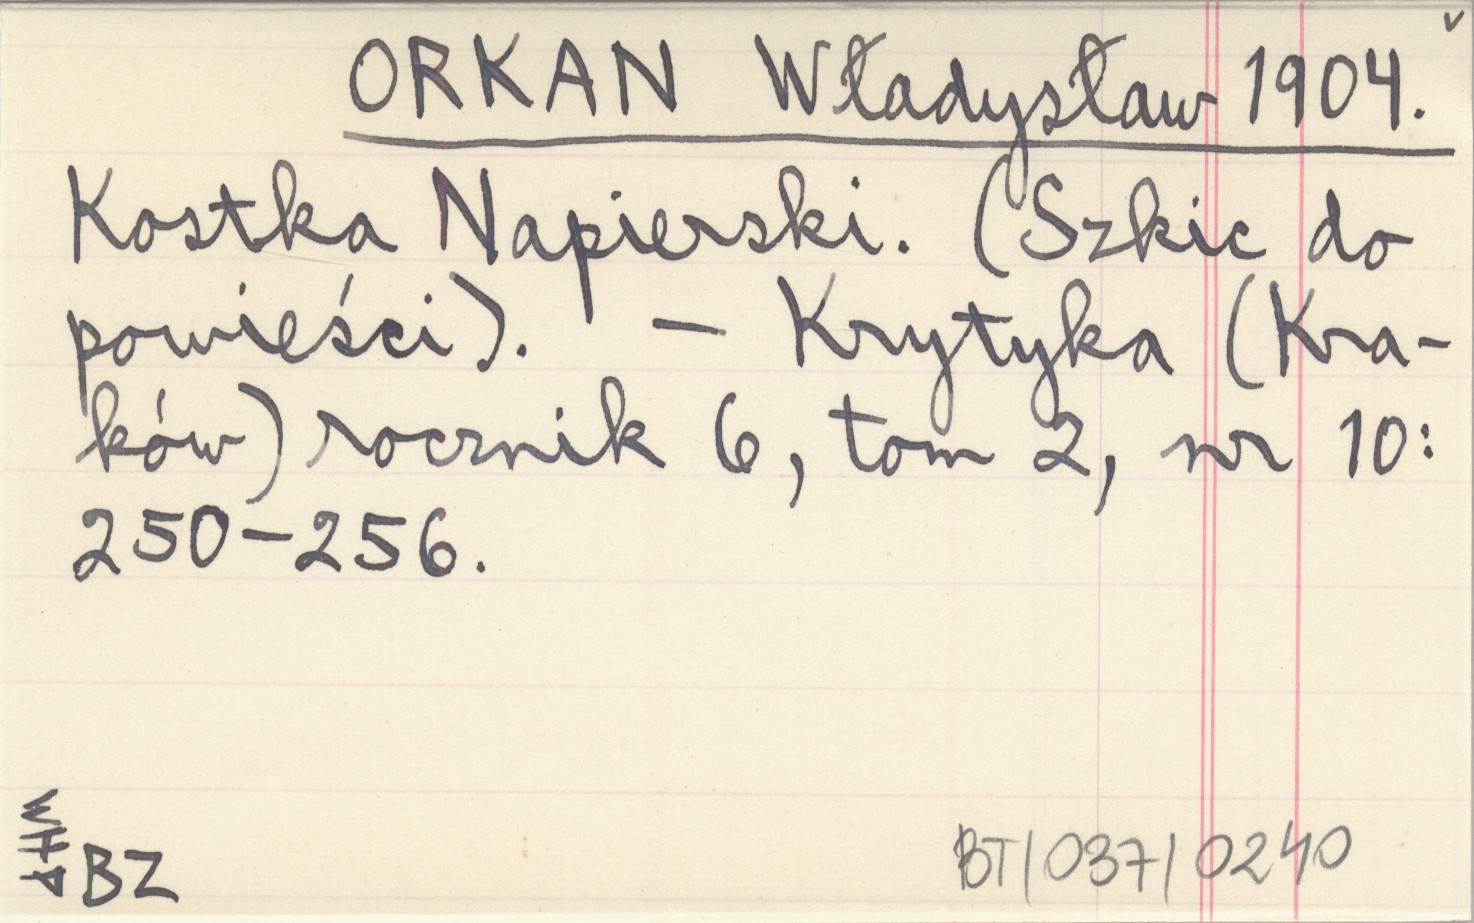 ORKAN Władysław 1904.
Kostka Napierski. (Szkic do
powieści). – Krytyka (Kra-
ków) rocznik 6, tom 2, nr 10:
250–256.
BZ
BT/037/0240